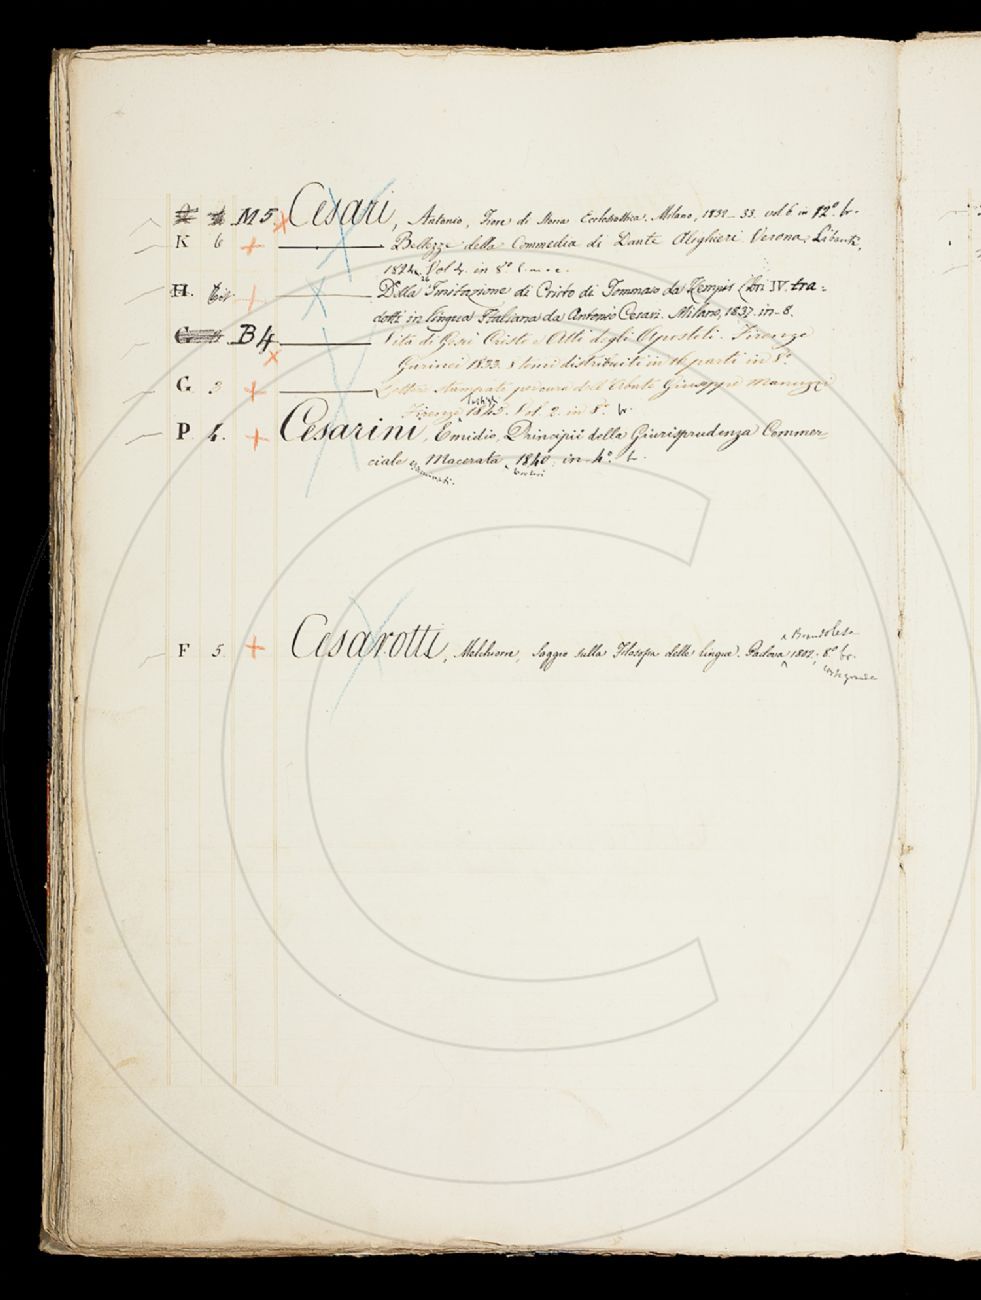 M 5. Cesari, Antonio, Fiore di Storia Ecclesiastica. Milano, 1832_33. vol 6 in 12º. br.
K 6 Bellezze della Commedia di Dante Alighieri. Verona, Libanti,
1824, Vol 4. in 8º
H. Della Imitazione di Cristo di Tommaso da Kempis libri IV. tra-
dotti in lingua Italiana da Antonio Cesari. Milano, 1837. in-8.
B 4 Vita di Gesù Cristo e Atti degli Apostoli. Firenze
1833. 5 tomi distribuiti in 16 parti in 8º
G. 3 Lettere stampate per cura dell'Abate Giuseppe Manuzzi
Firenze 1845. Vol. 2. in 8º. br.
P. 4. Cesarini, Emidio, Principii della Giurisprudenza Commer-
ciale Macerata, 1840, in-4º.
Brandolese
F 5. Cesarotti, Melchiorre, Saggio sulla Filosofia delle lingue. Padova 1802; 8º br.